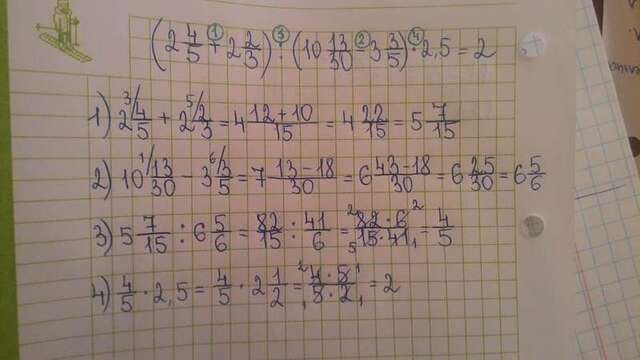 (2 4/5 + 2 2/3) : (10 13/30 - 3 3/5) · 2,5 = 2
1) 2 4/5 + 2 2/3 = 4 12+10/15 = 4 22/15 = 5 7/15
2) 10 13/30 - 3 3/5 = 7 13-18/30 = 6 43-18/30 = 6 25/30 = 6 5/6
3) 5 7/15 : 6 5/6 = 82/15 : 41/6 = 82·6/15·41 = 4/5
4) 4/5 · 2,5 = 4/5 · 2 1/2 = 4·5/5·2 = 2